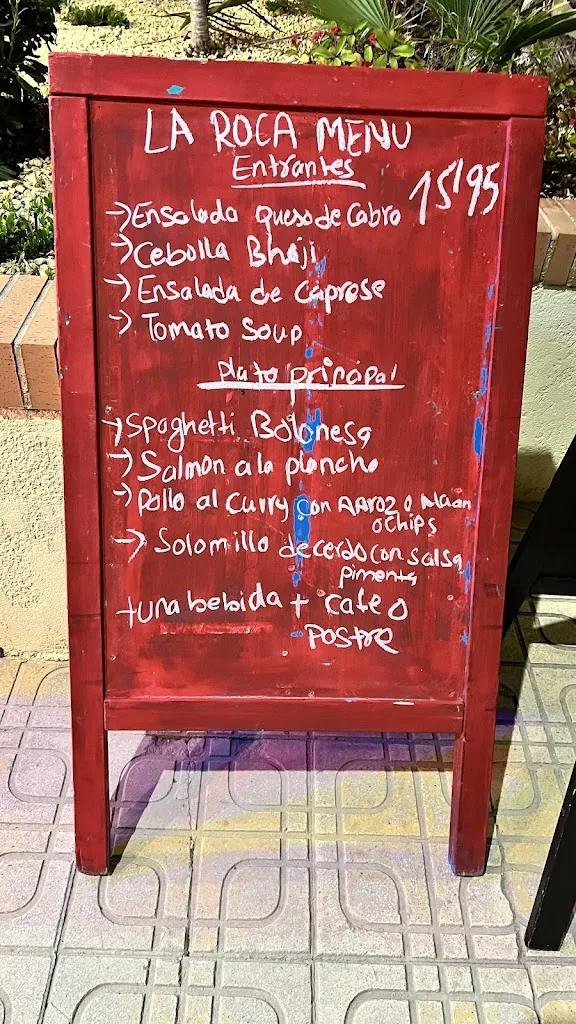 LA ROCA MENU
Entrantes
15'95
→Ensalada queso de Cabra
→Cebolla Bhaji
→Ensalada de caprese
→Tomato Soup
plato principal
→Spaghetti Bolonesa
→Salmon a la plancha
→Pollo al Curry con Arroz o Naan
o chips
→Solomillo de cerdo con salsa
pimenta
+una bebida + Cafe o
POSTRE